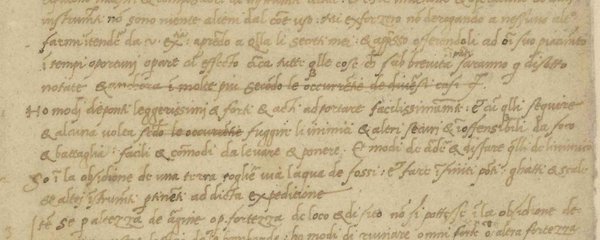 instrumẽti nõ sono niente alieni dal cõe uso. mi exforzero nõ derogando a nessuno al
farmi intẽder da v. exª: aprẽdo a q̃lla li secreti mei: & apresso offerendoli ad oĩ suo piacimẽto
i tempi oportuni operare cũ effecto circa tutte q̃lle cose: che sub brevità in parte saranno qui disotto
notate & anchora i molte piu secõdo le occurẽtie de diversi casi
Ho modi de ponti leggerissimi & forti & acti ad portare facillissimamẽte: Et cũ q̃lli seguire
& alcuna volta secõdo le occurẽtie fuggire li inimici & altri securi & inoffensibili da foco
& battaglia: facili & cõmodi da levare & ponere. Et modi de ardere & disfare q̃lli de linimico
So i la obsidione de una terra toglier via laqua de fossi: & fare infiniti ponti ghatti & scale
& altri instrumẽti ptinẽti ad dicta expeditione
Itẽ se p altezza de argine o p fortezza de loco & di sito nõ si potesse i la obsidione de
ho modi di ruinare omni forte o altra fortezza